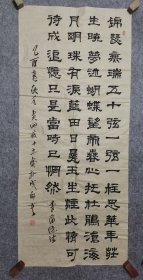 錦瑟無端五十弦一弦一柱思華年莊
生曉夢迷蝴蝶望帝春心托杜鵑滄海
月明珠有淚藍田日暖玉生煙此情可
待成追憶只是當時已惘然 李商隱詩
乙酉